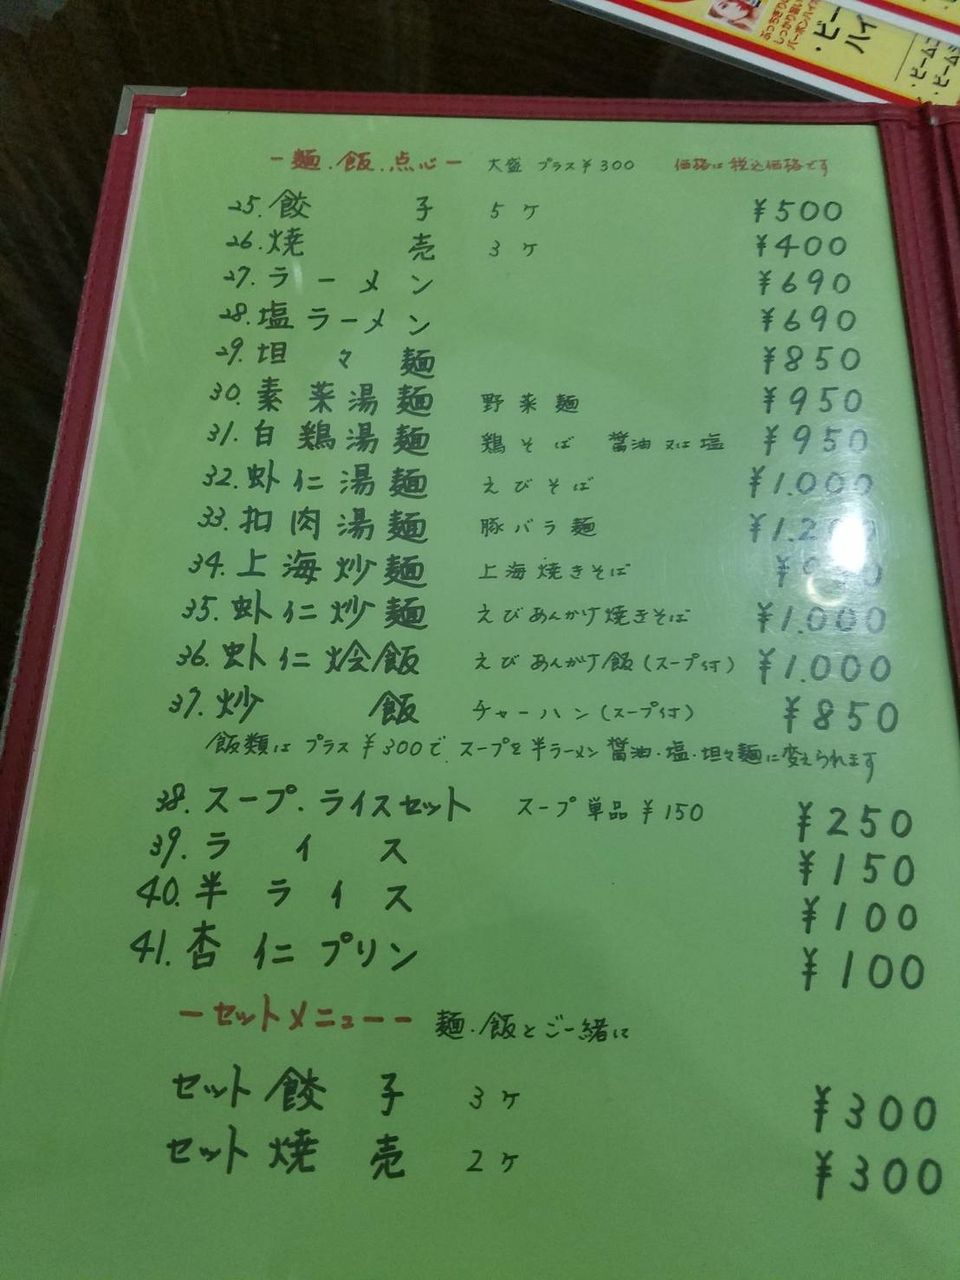 ー麺.飯.点心ー 大盛 プラス¥300 価格は税込価格です
25.餃子 5ケ ¥500
26.焼売 3ケ ¥400
27.ラーメン ¥690
28.塩ラーメン ¥690
29.坦々麺 ¥850
30.素菜湯麺 野菜麺 ¥950
31.白鶏湯麺 鶏そば 醤油又は塩 ¥950
32.虾仁湯麺 えびそば ¥1.000
33.扣肉湯麺 豚バラ麺
34.上海炒麺 上海焼きそば
35.虾仁炒麺 えびあんかけ焼きそば ¥1.000
36.虾仁烩飯 えびあんかけ飯(スープ付) ¥1.000
37.炒飯 チャーハン(スープ付) ¥850
飯類はプラス¥300で スープを半ラーメン 醤油.塩.坦々麺に変えられます
38.スープ.ライスセット スープ単品¥150 ¥250
39.ライス ¥150
40.半ライス ¥100
41.杏仁プリン ¥100
ーセットメニューー 麺.飯とご一緒に
セット餃子 3ケ ¥300
セット焼売 2ケ ¥300